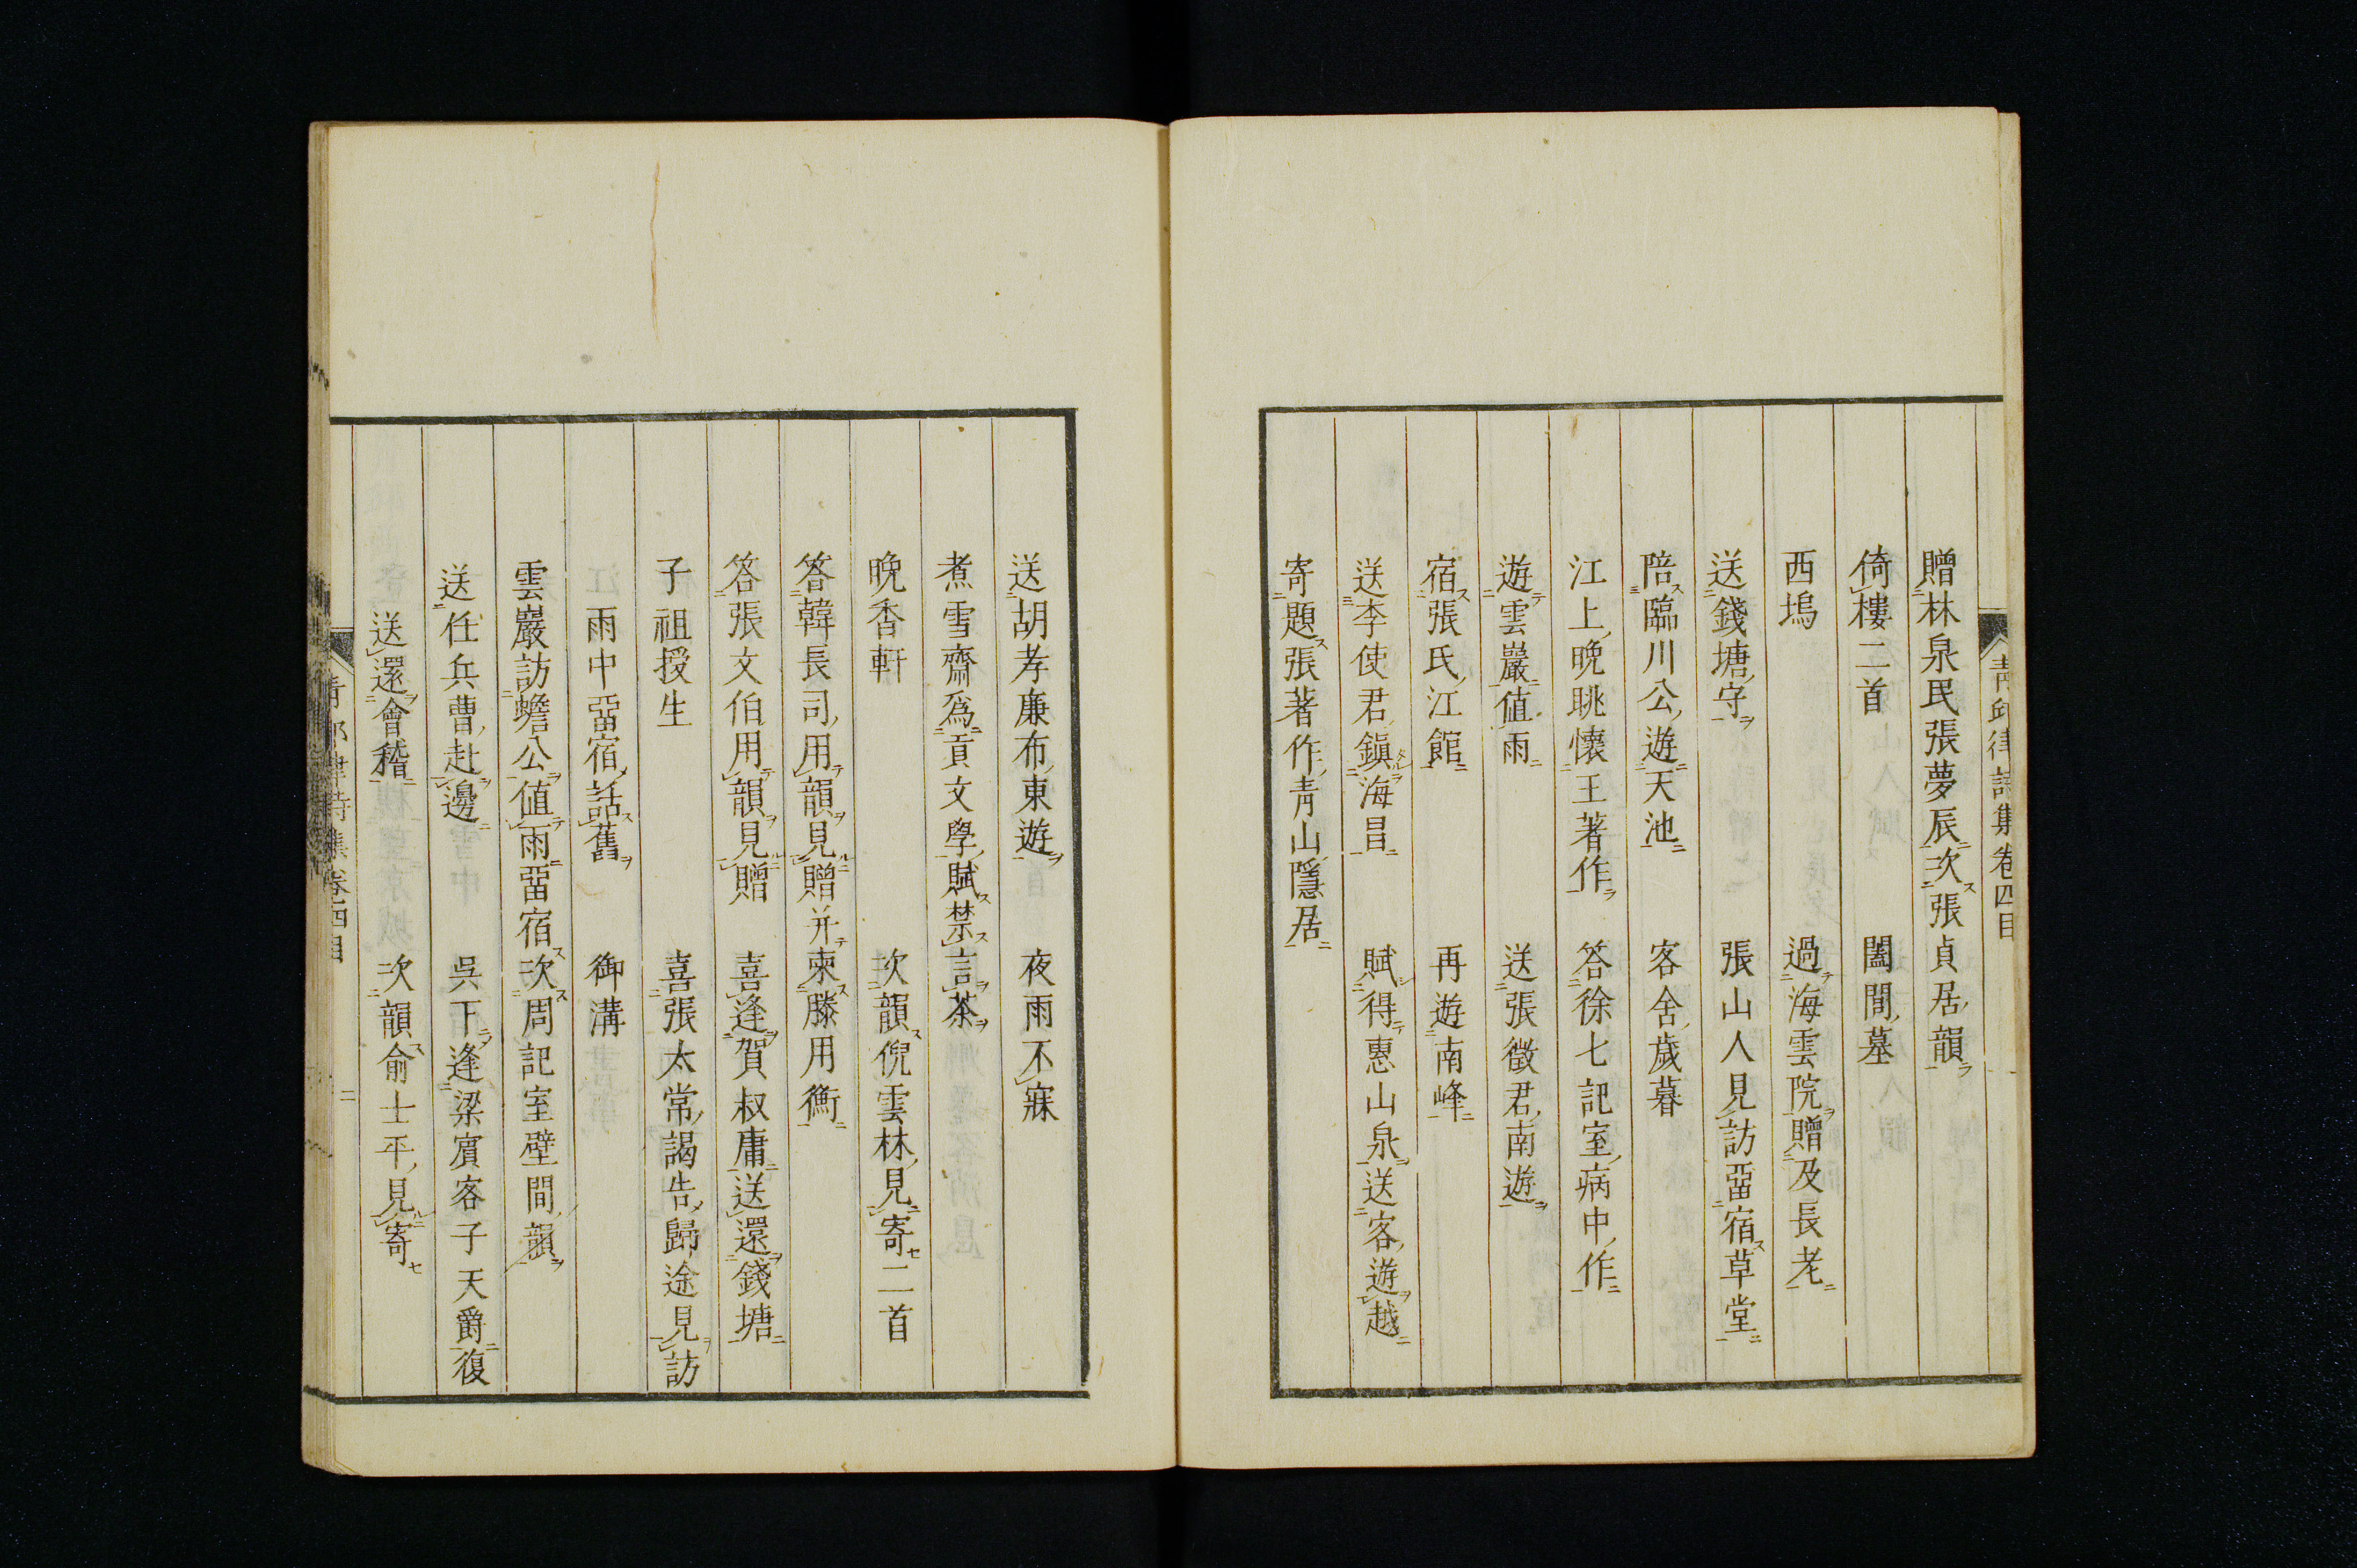 青邱律詩集卷四目
贈林泉民張夢辰次張貞居韻
倚樓二首　闔閭墓
西塢　過海雲院贈及長老
送錢塘守　張山人見訪畱宿草堂
陪臨川公遊天池　客舍歲暮
江上晩眺懷王著作　答徐七記室病中作
遊雲巖值雨　送張徵君南遊
宿張氏江館　再遊南峰
送李使君鎮海昌　賦得惠山泉送客遊越
寄題張著作青山隱居
送胡孝廉布東遊　夜雨不寐
煮雪齋爲貢文學賦禁言茶
晚香軒　次韻倪雲林見寄二首
答韓長司用韻見贈并柬滕用衡
答張文伯用韻見贈　喜逢賀叔庸送還錢塘
子祖授生　喜張太常謁告歸途見訪
雨中畱宿話舊　御溝
雲巖訪蟾公值雨畱宿次周記室壁間韻
送任兵曹赴邊　吳下逢梁賓客子天爵復
送還會稽　次韻俞士平見寄
律詩集卷四目　二